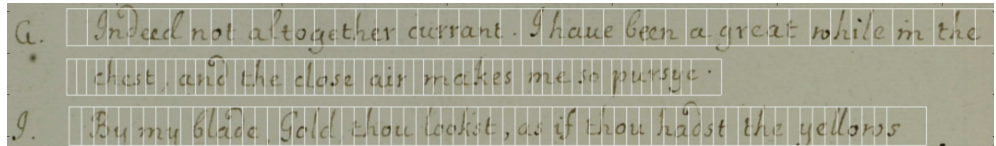 G. Indeed not altogether currant. I haue been a great while in the
chest, and the close air makes me so pursye.
I. By my blade, Gold thou lookst, as if thou hadst the yellows